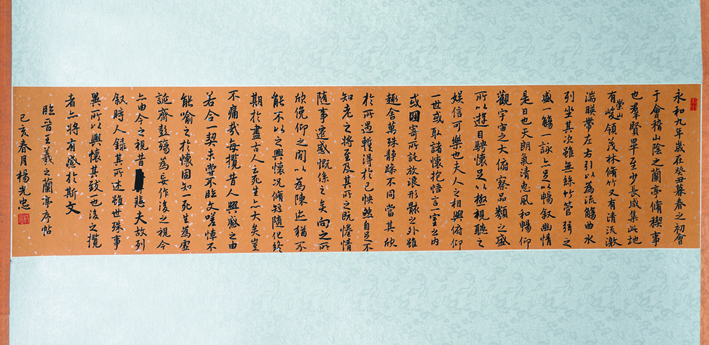 永和九年歲在癸丑暮春之初會
于會稽山陰之蘭亭脩稧事
也羣賢畢至少長咸集此地
有崇山峻領茂林脩竹又有清流激
湍暎帶左右引以為流觴曲水
列坐其次雖無絲竹管弦之
盛一觴一詠亦足以暢敘幽情
是日也天朗氣清惠風和暢仰
觀宇宙之大俯察品類之盛
所以遊目騁懷足以極視聽之
娛信可樂也夫人之相與俯仰
一世或取諸懷抱悟言一室之內
或因寄所託放浪形骸之外雖
趣舍萬殊靜躁不同當其欣
於所遇暫得於己怏然自足不
知老之將至及其所之既惓情
隨事遷感慨係之矣向之所
欣俛仰之間以為陳迹猶不
能不以之興懷況脩短隨化終
期於盡古人云死生亦大矣豈
不痛哉每攬昔人興感之由
若合一契未嘗不臨文嗟悼不
能喻之於懷固知一死生為虛
誕齊彭殤為妄作後之視今
亦由今之視昔悲夫故列
敘時人錄其所述雖世殊事
異所以興懷其致一也後之攬
者亦將有感於斯文
臨晉王羲之蘭亭序帖
己亥春月楊光忠